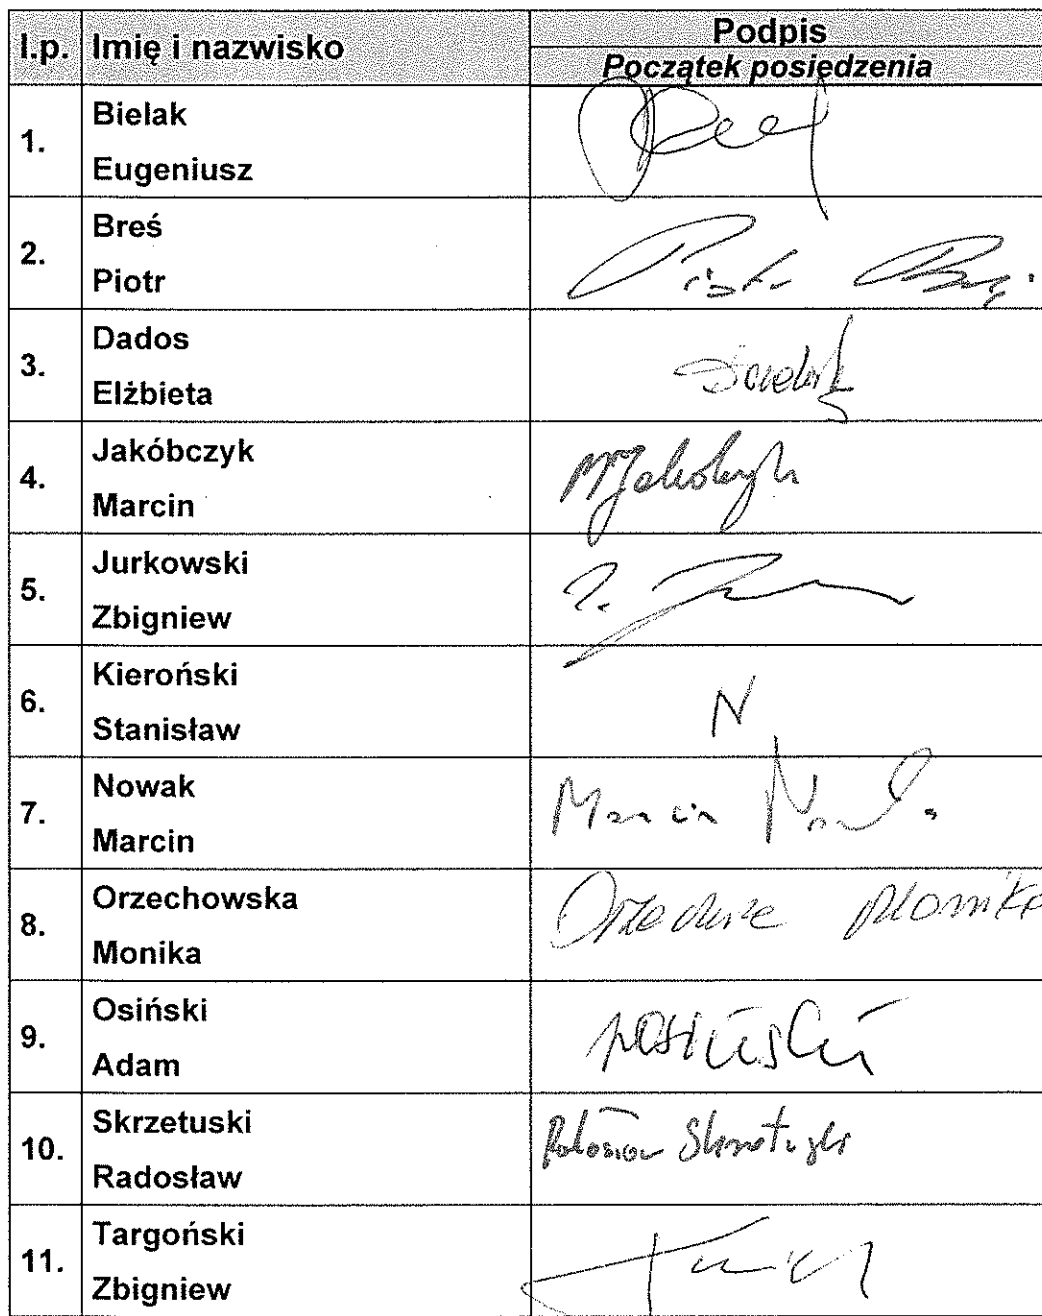 l.p. Imię i nazwisko Podpis
Początek posiedzenia
1. Bielak
Eugeniusz
2. Breś
Piotr
Piotr
3. Dados
Elżbieta
4. Jakóbczyk
Marcin
5. Jurkowski
Zbigniew
6. Kieroński
Stanisław
N
7. Nowak
Marcin
Marcin Nowak
8. Orzechowska
Monika
Monika
9. Osiński
Adam
AOsiński
10. Skrzetuski
Radosław
Radosław Skrzetuski
11. Targoński
Zbigniew